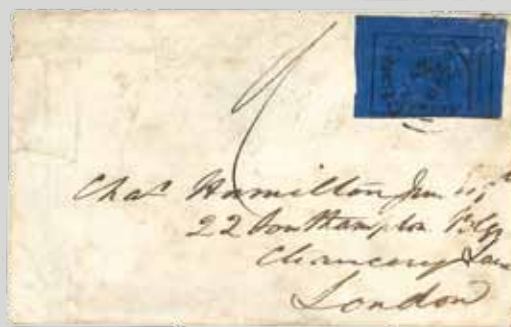 Chas Hamilton Jun. Esq
22 Southampton Bldgs
Chancery Lane
London